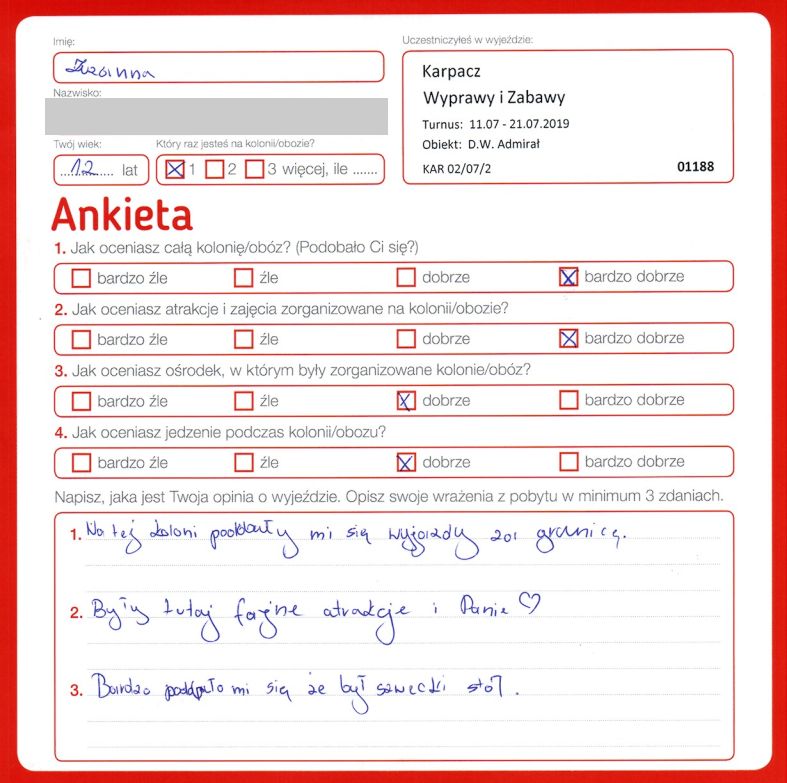 Imię:
Zuzanna
Nazwisko:
Twój wiek:
12 lat
Który raz jesteś na kolonii/obozie?
1 2 3 więcej, ile .......
Uczestniczyłeś w wyjeździe:
Karpacz
Wyprawy i Zabawy
Turnus: 11.07 - 21.07.2019
Obiekt: D.W. Admirał
KAR 02/07/2 01188
Ankieta
1. Jak oceniasz całą kolonię/obóz? (Podobało Ci się?)
bardzo źle źle dobrze bardzo dobrze
2. Jak oceniasz atrakcje i zajęcia zorganizowane na kolonii/obozie?
bardzo źle źle dobrze bardzo dobrze
3. Jak oceniasz ośrodek, w którym były zorganizowane kolonie/obóz?
bardzo źle źle dobrze bardzo dobrze
4. Jak oceniasz jedzenie podczas kolonii/obozu?
bardzo źle źle dobrze bardzo dobrze
Napisz, jaka jest Twoja opinia o wyjeździe. Opisz swoje wrażenia z pobytu w minimum 3 zdaniach.
1. Na tej koloni mi się wyjazdy za granicę.
2. Były tutaj fajne atrakcje i Panie ♡
3. Bardzo mi się że był szwecki stół.